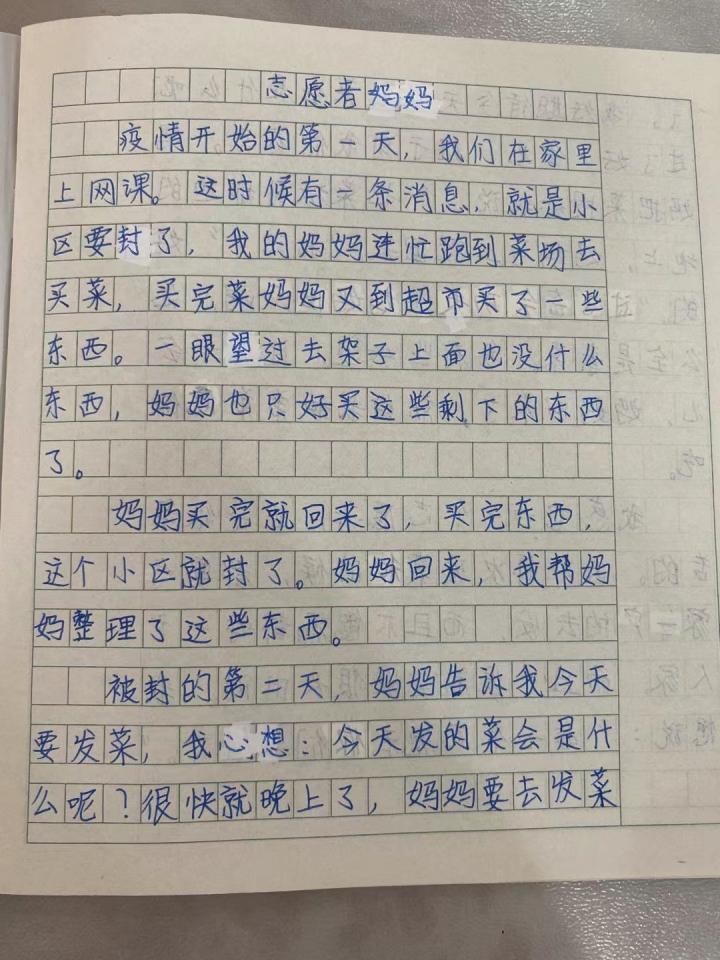 志愿者妈妈
疫情开始的第一天，我们在家里
上网课。这时候有一条消息，就是小
区要封了，我的妈妈连忙跑到菜场去
买菜，买完菜妈妈又到超市买了一些
东西。一眼望过去架子上面也没什么
东西，妈妈也只好买这些剩下的东西
了。
妈妈买完就回来了，买完东西，
这个小区就封了。妈妈回来，我帮妈
妈整理了这些东西。
被封的第二天，妈妈告诉我今天
要发菜，我心想：今天发的菜会是什
么呢？很快就晚上了，妈妈要去发菜